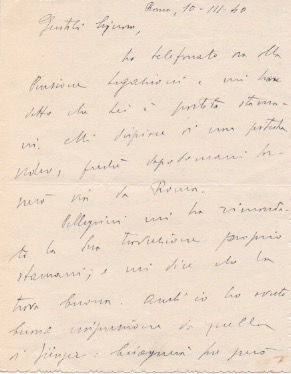 Roma, 10-III-40
Gentile Signora,
ho telefonato ora alla
Pensione e mi han
detto che Lei è partita stama-
ni. Mi dispiace di non poterla
vedere, perché dopodomani
via da Roma.
Pellegrini mi ha rimanda-
to la sua traduzione proprio
stamani; e mi dice che la
trova buona. Anch'io ho avuto
buona impressione da quella
di però